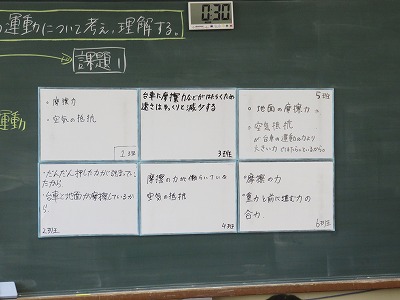 運動について考え,理解する。
0:30
課題1
運動
。摩擦力
。空気の抵抗
1班
台車に摩擦力などがはたらくため
速さはゆっくりと減少する
3班
5班
。地面の摩擦力
。空気抵抗
が台車の運動の力より
大きい力ではたらいているから。
・だんだん押した力が弱まってい
ったから
・台車と地面が摩擦しているか
ら。
2班
摩擦の力が働らいている
空気の抵抗
4班
・摩擦の力
・重力と前に進む力の
合力
6班